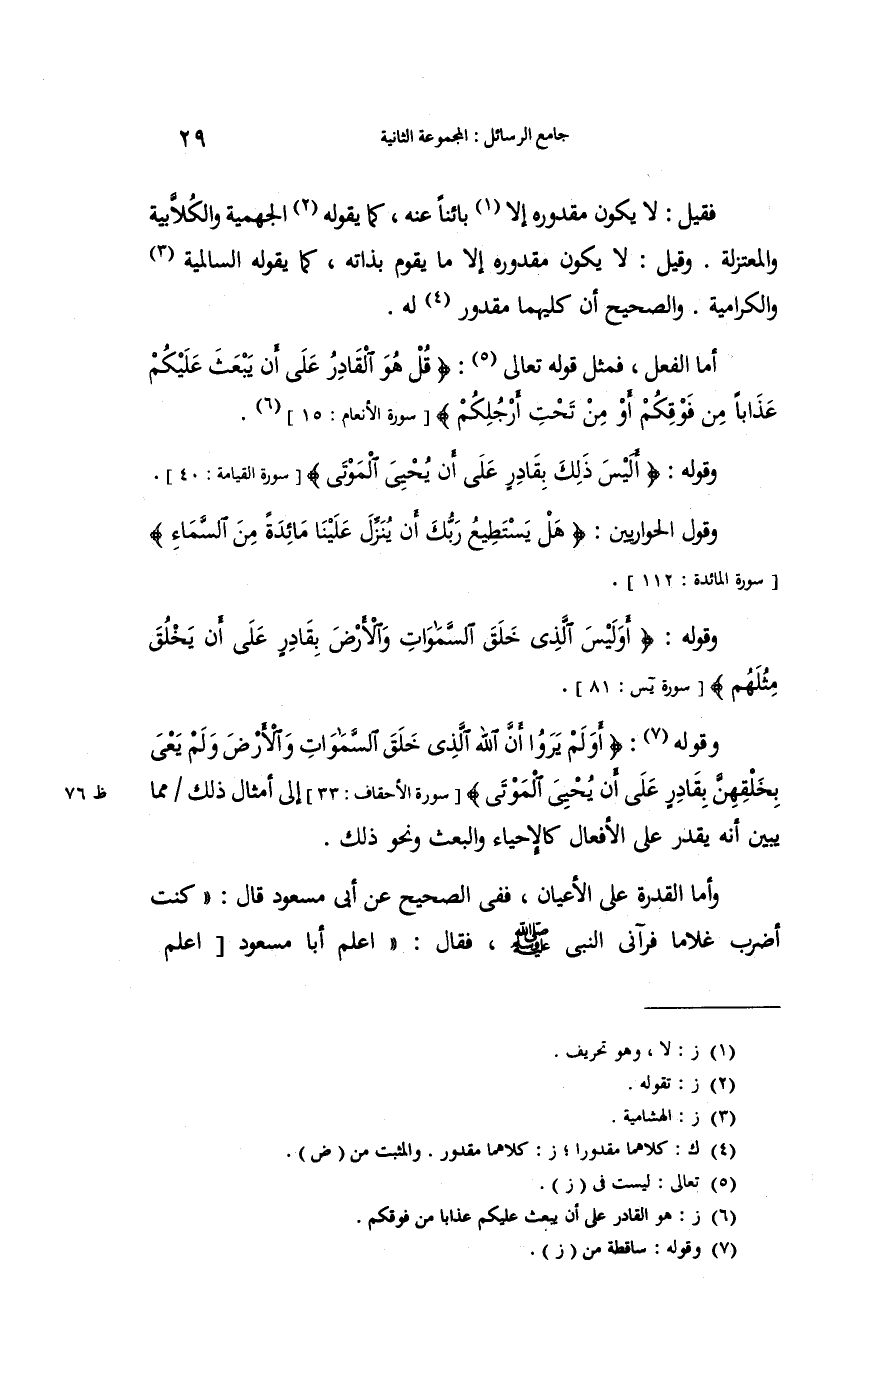 جامع الرسائل : المجموعة الثانية ٢٩
فقيل : لا يكون مقدوره إلا (١) بائناً عنه ، كما يقوله (٢) الجهمية والكُلاَّبية
والمعتزلة . وقيل : لا يكون مقدوره إلا ما يقوم بذاته ، كما يقوله السالمية (٣)
والكرامية . والصحيح أن كليهما مقدور (٤) له .
أما الفعل ، فمثل قوله تعالى (٥) : ﴿ قُلْ هُوَ ٱلْقَادِرُ عَلَى أَن يَبْعَثَ عَلَيْكُمْ
عَذَاباً مِن فَوْقِكُمْ أَوْ مِنْ تَحْتِ أَرْجُلِكُمْ ﴾ [ سورة الأنعام : ١٥ ] (٦) .
وقوله : ﴿ أَلَيْسَ ذَلِكَ بِقَادِرٍ عَلَى أَن يُحْيِىَ ٱلْمَوْتَى ﴾ [ سورة القيامة : ٤٠ ] .
وقول الحواريين : ﴿ هَلْ يَسْتَطِيعُ رَبُّكَ أَن يُنَزِّلَ عَلَيْنَا مَائِدَةً مِنَ ٱلسَّمَاءِ ﴾
[ سورة المائدة : ١١٢ ] .
وقوله : ﴿ أَوَلَيْسَ ٱلَّذِى خَلَقَ ٱلسَّمَٰوَاتِ وَٱلْأَرْضَ بِقَادِرٍ عَلَى أَن يَخْلُقَ
مِثْلَهُم ﴾ [ سورة يٓس : ٨١ ] .
وقوله (٧) : ﴿ أَوَلَمْ يَرَوْا أَنَّ ٱللهَ ٱلَّذِى خَلَقَ ٱلسَّمَٰوَاتِ وَٱلْأَرْضَ وَلَمْ يَعْىَ
بِخَلْقِهِنَّ بِقَادِرٍ عَلَى أَن يُحْيِىَ ٱلْمَوْتَى ﴾ [ سورة الأحقاف : ٣٣ ] إلى أمثال ذلك / مما ظ ٧٦
يبين أنه يقدر على الأفعال كالإحياء والبعث ونحو ذلك .
وأما القدرة على الأعيان ، ففى الصحيح عن أبى مسعود قال : « كنت
أضرب غلاما فرآنى النبى ﷺ ، فقال : « اعلم أبا مسعود [ اعلم
(١) ز : لا ، وهو تحريف .
(٢) ز : تقوله .
(٣) ز : الهشامية .
(٤) ك : كلاهما مقدورا ؛ ز : كلاهما مقدور . والمثبت من ( ض ) .
(٥) تعالى : ليست فى ( ز ) .
(٦) ز : هو القادر على أن يبعث عليكم عذابا من فوقكم .
(٧) وقوله : ساقطة من ( ز ) .